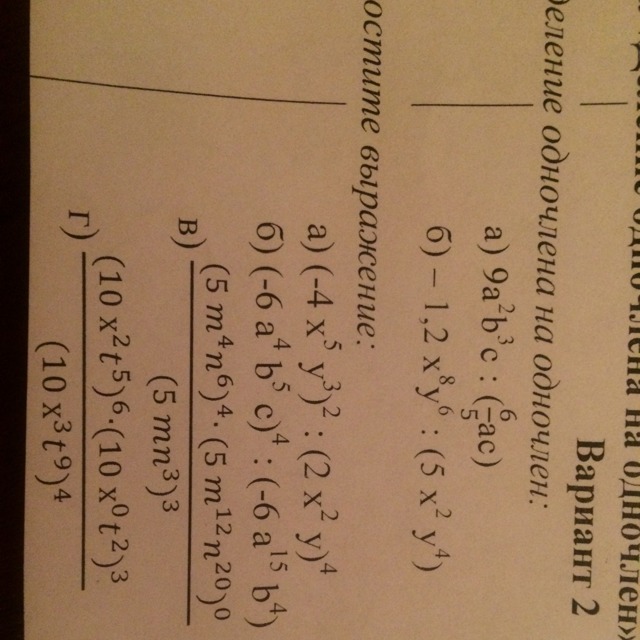 одночлена на одночлен
Вариант 2
деление одночлена на одночлен:
а) 9a²b³c : (6/5 ac)
б) – 1,2 x⁸y⁶ : (5 x² y⁴)
остите выражение:
а) (-4 x⁵ y³)² : (2 x² y)⁴
б) (-6 a⁴ b⁵ c)⁴ : (-6 a¹⁵ b⁴)
в) (5 m⁴n⁶)⁴·(5 m¹²n²⁰)⁰ / (5 mn³)³
г) (10 x²t⁵)⁶·(10 x⁰t²)³ / (10 x³t⁹)⁴